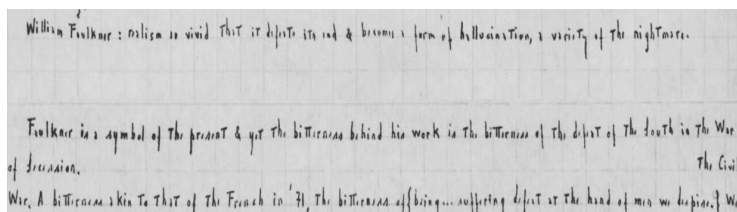 William Faulkner : realism so vivid that it defeats its end & becomes a form of hallucination, a variety of the nightmare.
Faulkner is a symbol of the present & yet the bitterness behind his work is the bitterness of the defeat of the South in the War
of Secession. The Civil
War. A bitterness akin to that of the French in '71, the bitterness of {being... suffering defeat at the hand of men we despise.} We